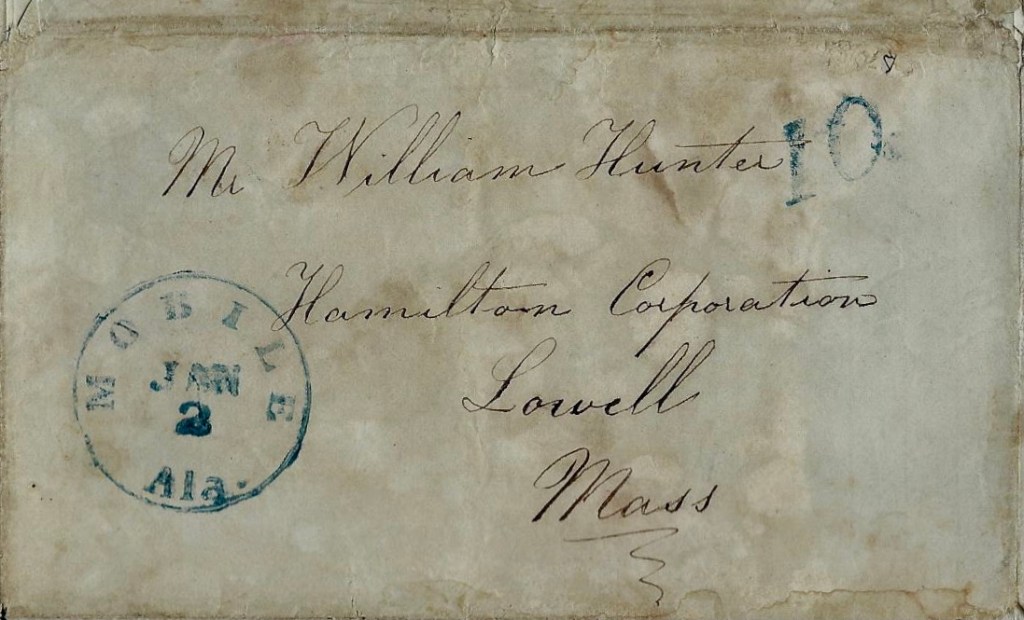 10
Mr William Hunter
Hamilton Corporation
Lowell
Mass
MOBILE
JAN
2
Ala.